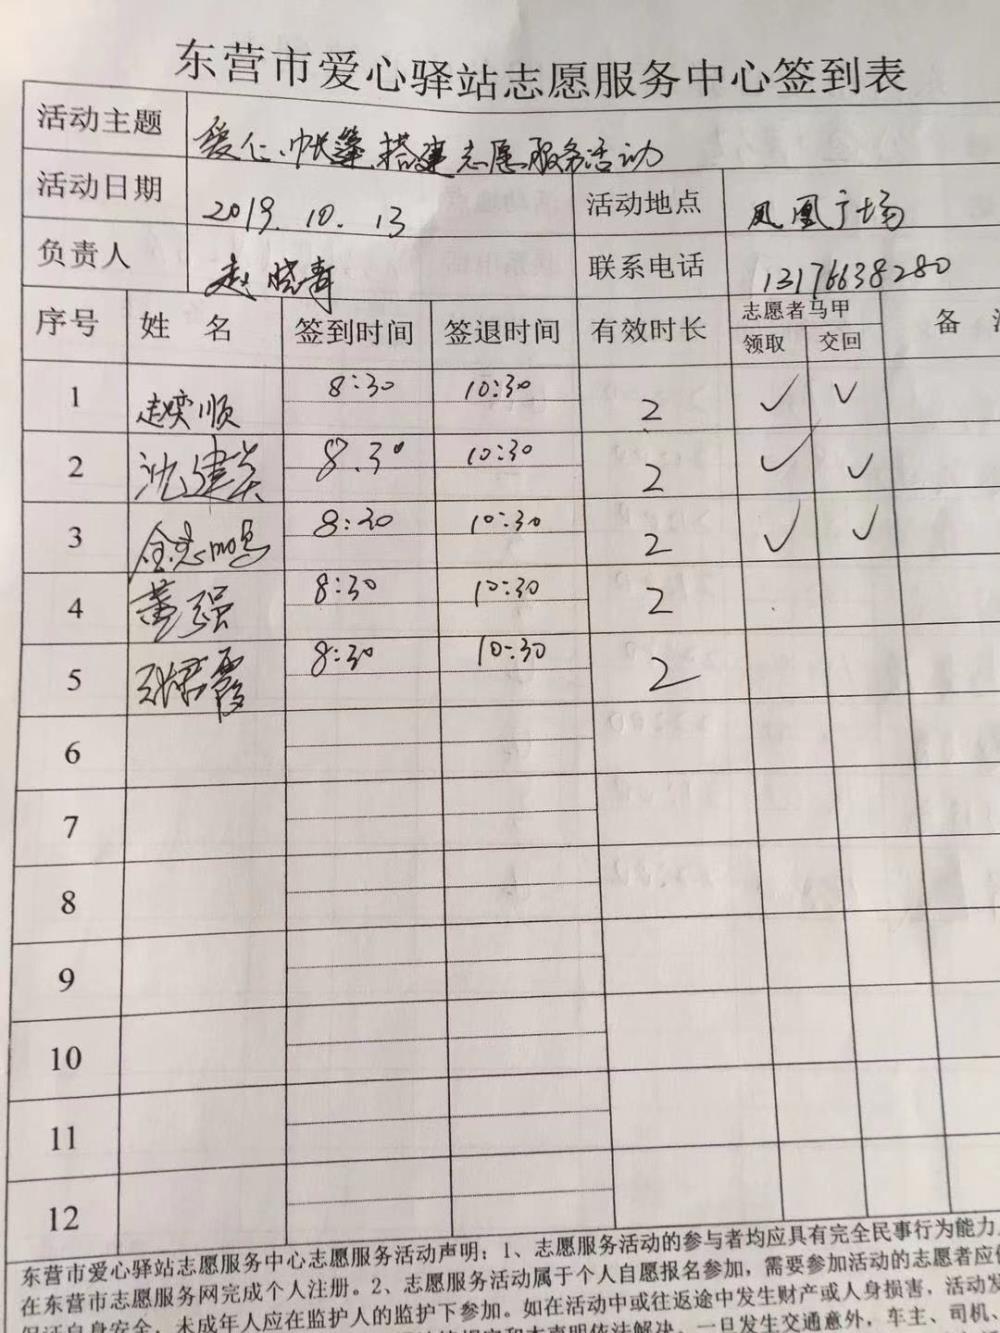 东营市爱心驿站志愿服务中心签到表
活动主题 爱仁、帐篷搭建志愿服务活动
活动日期 2019.10.13 活动地点 凤凰广场
负责人 赵晓青 联系电话 13176638280
序号 姓名 签到时间 签退时间 有效时长 志愿者马甲 备
领取 交回
1 赵奕顺 8:30 10:30 2 ✓ ✓
2 沈建英 8.30 10:30 2 ✓ ✓
3 8:30 10:30 2 ✓ ✓
4 董强 8:30 10:30 2
5 8:30 10:30 2
6
7
8
9
10
11
12
东营市爱心驿站志愿服务中心志愿服务活动声明：1、志愿服务活动的参与者均应具有完全民事行为能力，
在东营市志愿服务网完成个人注册。2、志愿服务活动属于个人自愿报名参加，需要参加活动的志愿者应
保证自身安全，未成年人应在监护人的监护下参加。如在活动中或往返途中发生财产或人身损害，活动发
和本声明依法解决。一旦发生交通意外，车主、司机、